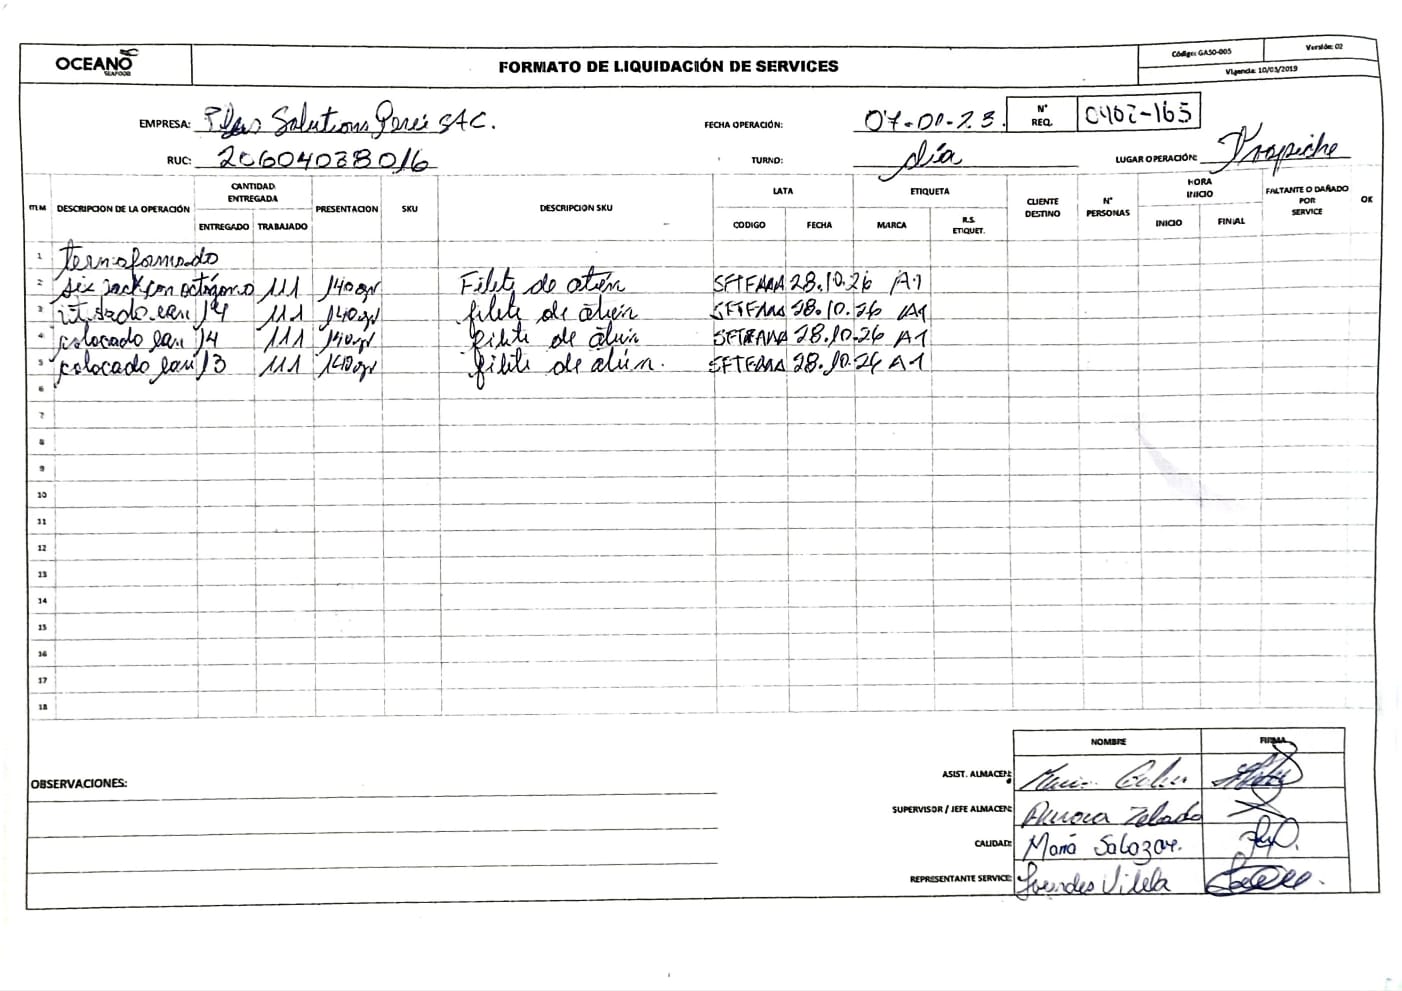 OCEANO
SEAFOOD
FORMATO DE LIQUIDACIÓN DE SERVICES
Código: GASO-005
Versión: 02
Vigencia: 10/03/2019
EMPRESA: Solutions Perú SAC.
FECHA OPERACIÓN:
N° REQ. 0402-165
RUC: 20604038016
TURNO: día
LUGAR OPERACIÓN: Trapiche
ITEM DESCRIPCION DE LA OPERACIÓN CANTIDAD ENTREGADA PRESENTACION SKU DESCRIPCION SKU LATA ETIQUETA CLIENTE DESTINO N° PERSONAS HORA INICIO FALTANTE O DAÑADO POR SERVICE OK
ENTREGADO TRABAJADO CODIGO FECHA MARCA R.S. ETIQUET. INICIO FINAL
1 termoformado
2 six pack con octógono 111 140gr Filete de atún 28.10.26 A1
3 111 140gr filete de atún 28.10.26 A1
4 colocado 14 111 140gr filete de atún 28.10.26 A1
5 colocado 13 111 140gr filete de atún. 28.10.26 A1
6
7
8
9
10
11
12
13
14
15
16
17
18
NOMBRE FIRMA
OBSERVACIONES:
ASIST. ALMACEN:
SUPERVISOR / JEFE ALMACEN: Aurora
CALIDAD: María Salazar.
REPRESENTANTE SERVICE: Lourdes Vilela